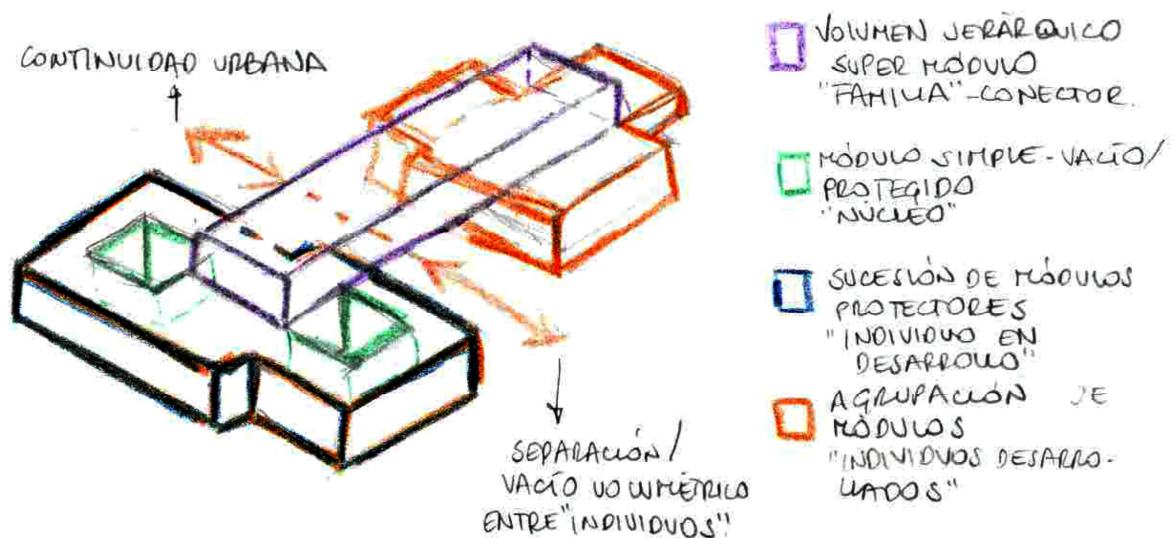 CONTINUIDAD URBANA
SEPARACIÓN/
VACÍO VOLUMÉTRICO
ENTRE "INDIVIDUOS"
VOLUMEN JERÁRQUICO
SUPER MÓDULO
"FAMILIA"-CONECTOR.
MÓDULO SIMPLE-VACÍO/
PROTEGIDO
"NÚCLEO"
SUCESIÓN DE MÓDULOS
PROTECTORES
"INDIVIDUO EN
DESARROLLO"
AGRUPACIÓN DE
MÓDULOS
"INDIVIDUOS DESARRO-
LLADOS"